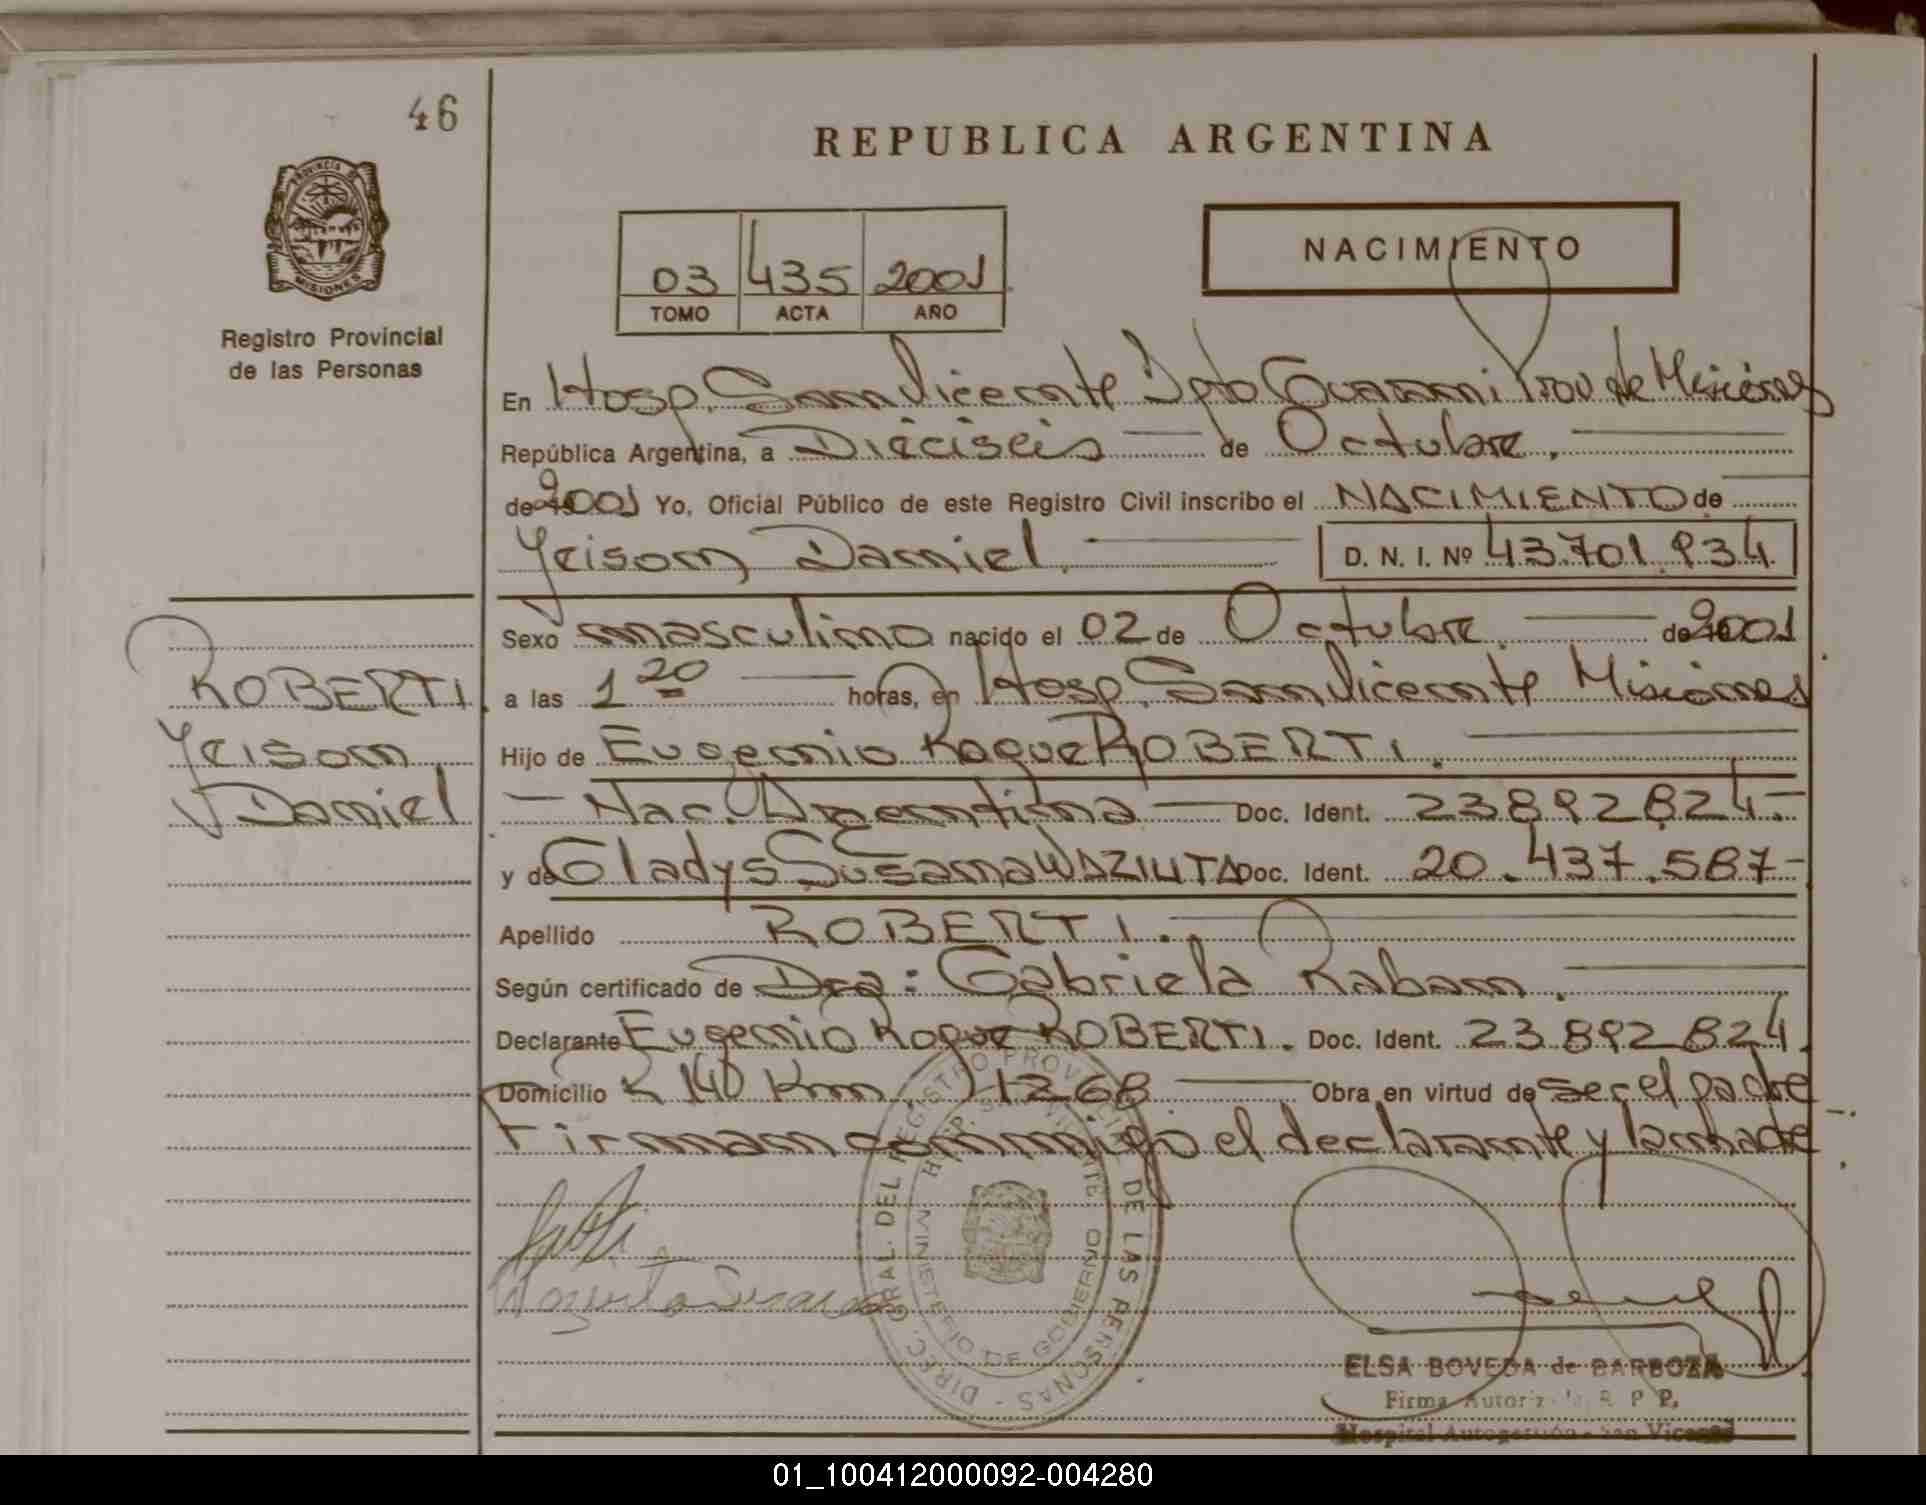 46
REPUBLICA ARGENTINA
PROVINCIA DE
MISIONES
Registro Provincial
de las Personas
03 435 2001
TOMO ACTA AÑO
NACIMIENTO
En Hosp. San Vicente Dpto Guarani Prov de Misiones
República Argentina, a Dieciseis de Octubre.
de 2001 Yo, Oficial Público de este Registro Civil inscribo el NACIMIENTO de
Yeison Daniel. D. N. I. Nº 43.701.934
Sexo masculino nacido el 02 de Octubre. de 2001
ROBERTI.
Yeison
Daniel
a las 1 20 horas, en Hosp. San Vicente Misiones
Hijo de Eugenio Roque ROBERTI.
Nac. Argentina Doc. Ident. 23892824.-
y de Gladys Susana WAZIUTA Doc. Ident. 20.437.587-
Apellido ROBERTI.
Según certificado de Dra: Gabriela Raban.
Declarante Eugenio Roque ROBERTI. Doc. Ident. 23.892.824.
Domicilio R 14 Km 1268 Obra en virtud de ser el padre
Firman conmigo el declarante y la madre
DIREC. GRAL. DEL REGISTRO PROVINCIAL DE LAS PERSONAS
HOSP. SAN VICENTE
MINISTERIO DE GOBIERNO
ELSA BOVEDA de BARBOZA
Firma Autoriz R. P. P.
Hospital Autogestión - San Vicente
01_100412000092-004280